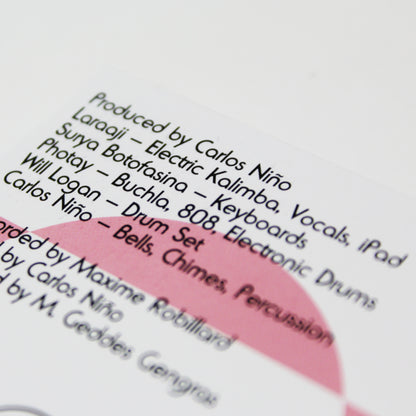 Produced by Carlos Niño
Laraaji – Electric Kalimba, Vocals, iPad
Surya Botofasina – Keyboards
Photay – Buchla, 808, Electronic Drums
Will Logan – Drum Set
Carlos Niño – Bells, Chimes, Percussion
orded by Maxime Robillard
by Carlos Niño
d by M. Geddes Gengras